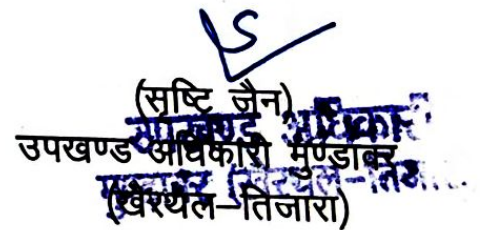 (सृष्टि जैन)
उपखण्ड अधिकारी मुण्डावर
(खैरथल–तिजारा)
उपखण्ड अधिकारी
मुण्डावर (खैरथल-तिजा...